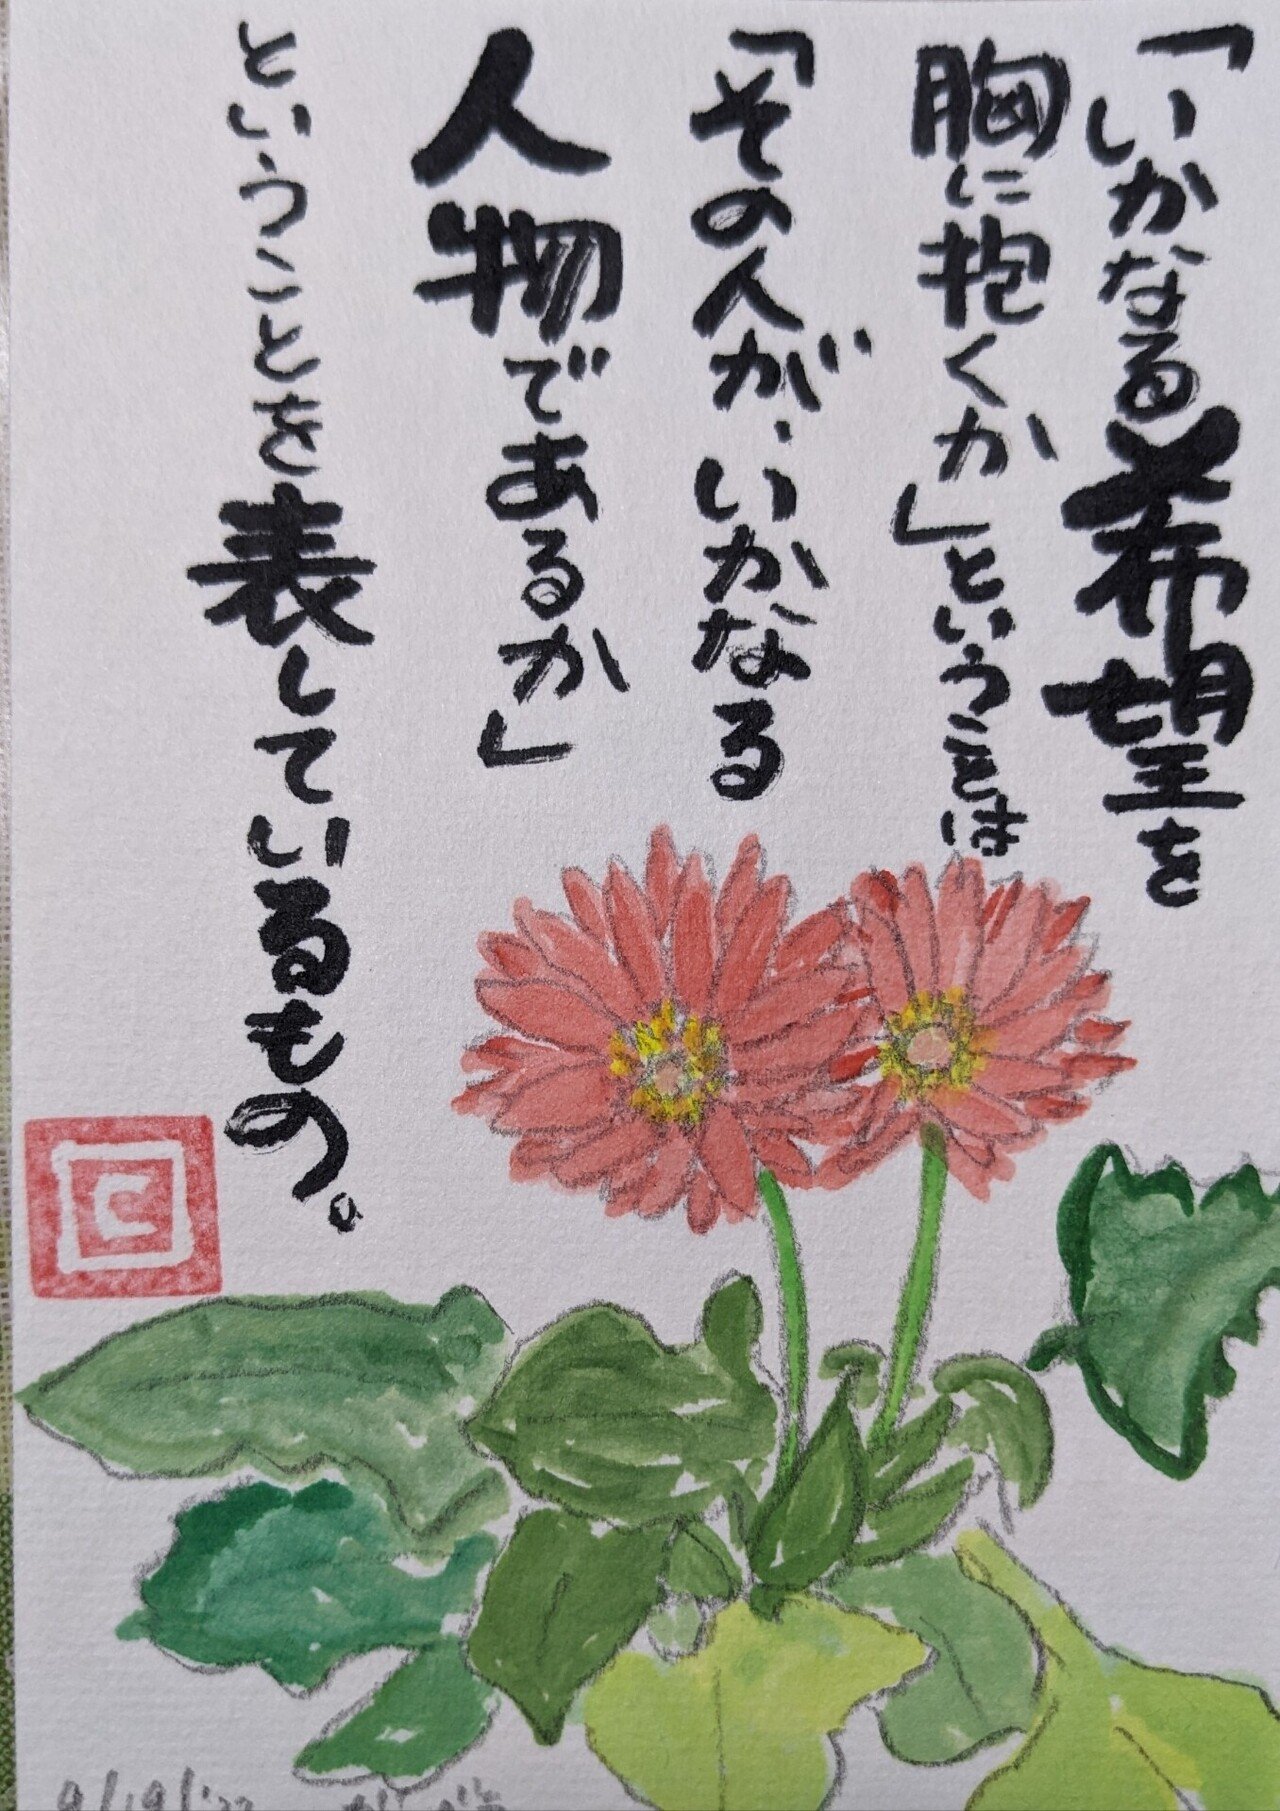 「いかなる希望を
胸に抱くか」ということは
「その人が、いかなる
人物であるか」
ということを表しているもの。